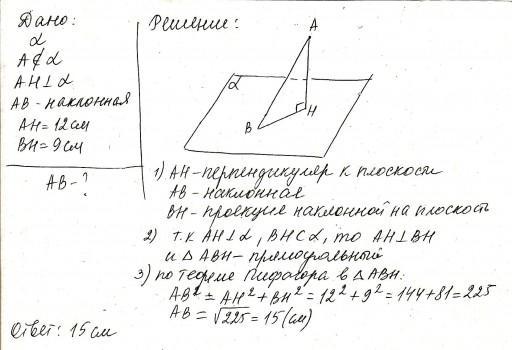 Дано:
α
A ∉ α
AH ⊥ α
AB - наклонная
AH = 12 см
BH = 9 см
AB - ?
Решение:
A
α
H
B
1) AH - перпендикуляр к плоскости
AB - наклонная
BH - проекция наклонной на плоскость
2) т.к AH ⊥ α, BH ⊂ α, то AH ⊥ BH
и △ ABH - прямоугольный
3) по теореме Пифагора в △ ABH:
AB² = AH² + BH² = 12² + 9² = 144 + 81 = 225
AB = √225 = 15 (см)
Ответ: 15 см